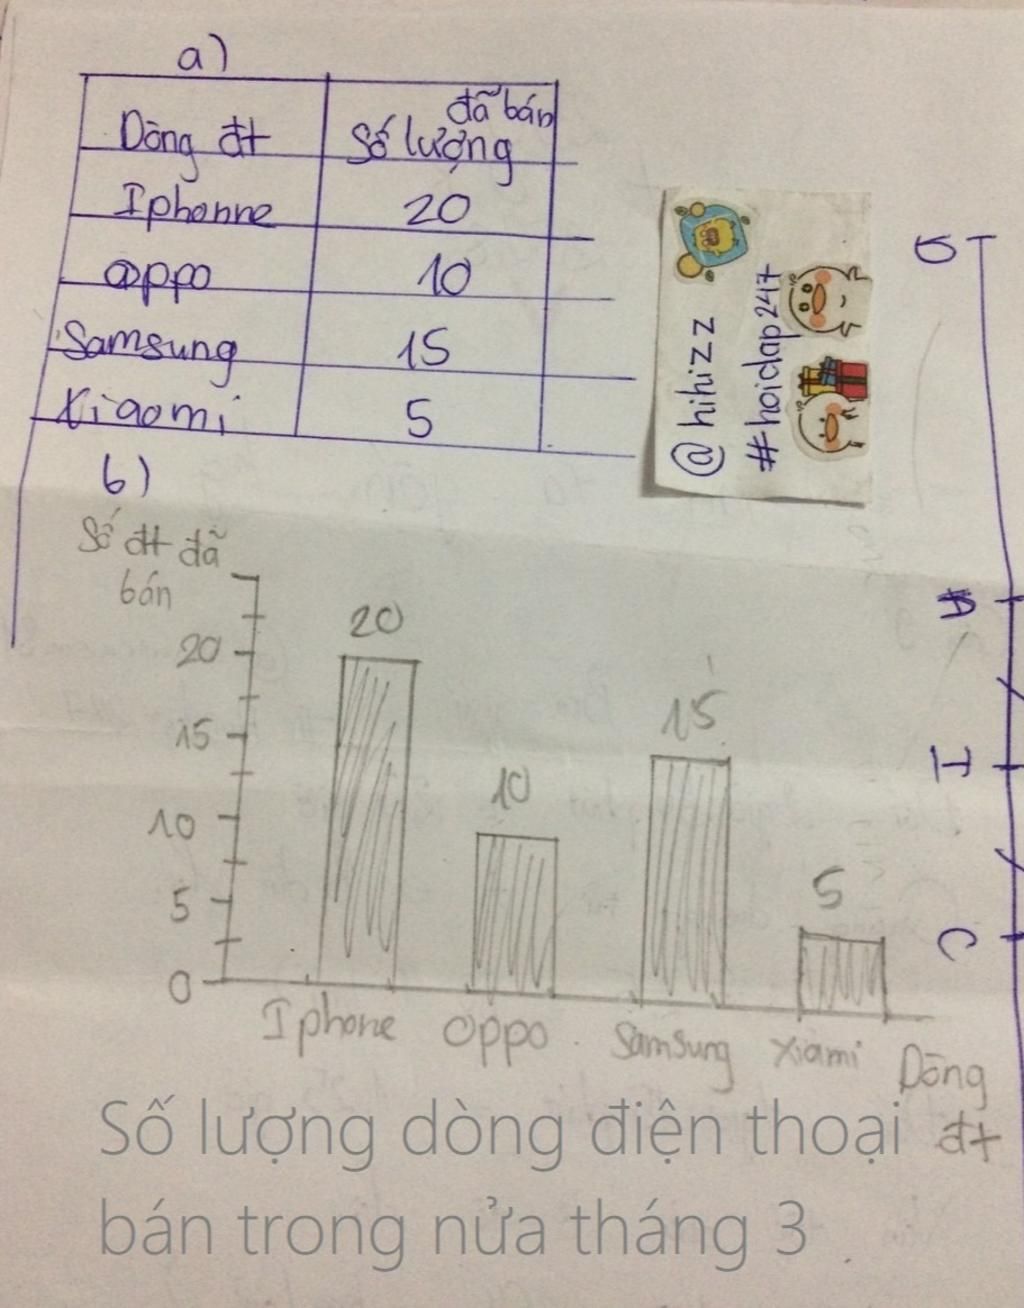 a)
Dòng đt
đã bán
Số lượng
Iphonne 20
Oppo 10
Samsung 15
Xiaomi 5
@hihizz
#hoidap247
b)
Số đt đã
bán
20
15
10
5
0
20
10
15
5
Iphone Oppo Samsung Xiami Dòng
đt
Số lượng dòng điện thoại
bán trong nửa tháng 3
A
I
C